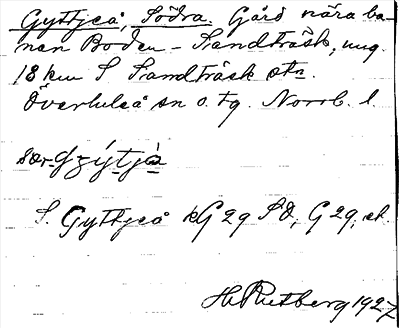 Gyttjeå, Södra. Gård nära ba-
nan Boden - Sandträsk, ung.
18 km S Sandträsk stn.
Överluleå sn o. tg. Norrb. l
S. Gyttjeå kG 29 SD, G 29, ek.
H Rietberg 1927